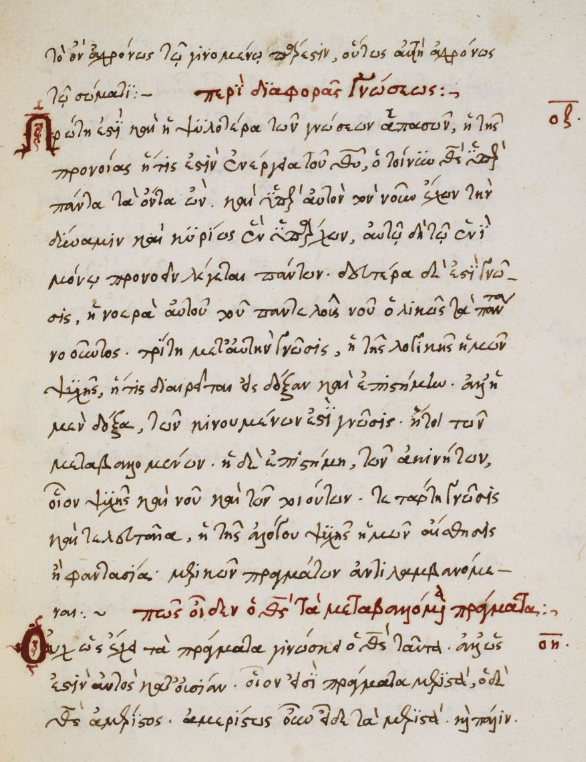 τὸ ὂν ἀχρόνως τῷ γινομένῳ πάρεστιν, οὕτως αὐτὴ ἀχρόνως
τῷ σώματι:~ περὶ διαφορᾶς γνώσεως:~
Πρώτη ἐστὶ καὶ ἡ ὑψιλοτέρα τῶν γνώσεων ἁπασῶν, ἡ τῆς οζ.
προνοίας ἥτις ἐστὶν ἐνέργεια τοῦ θυ, ὁ τοίνυν θς ὑπὲρ
πάντα τὰ ὄντα ὤν. καὶ ὑπὲρ αὐτὸν τὸν νοῦν ἔχων τὴν
δύναμιν καὶ κυρίως ἓν ὑπάρχων, αὐτῷ δὴ τῷ ἑνὶ
μόνῳ προνοεῖν λέγεται πάντων. δευτέρα δέ ἐστι γνῶ-
σις, ἡ νοερὰ αὐτοῦ τοῦ παντελοῦς νοῦ ὁλικῶς τὰ πάντα
νοοῦντος. τρίτη μετ' αὐτὴν γνῶσις, ἡ τῆς λογικῆς ἡμῶν
ψυχῆς, ἥτις διαιρεῖται εἰς δόξαν καὶ ἐπιστήμην. ἀλλ' ἡ
μὲν δόξα, τῶν κινουμένων ἐστὶ γνῶσις. ἤτοι τῶν
μεταβαλλομένων. ἡ δὲ ἐπιστήμη, τῶν ἀκινήτων,
οἷον ψυχῆς καὶ νοῦ καὶ τῶν τοιούτων. τετάρτη γνῶσις
καὶ τελευταία, ἡ τῆς ἀλόγου ψυχῆς ἡμῶν αἴσθησις
ἢ φαντασία. μερικῶν πραγμάτων ἀντιλαμβανόμε-
ναι. ~ πῶς οἶδεν ὁ θς τὰ μεταβαλλόμενα πράγματα:~
Οὐχ ὡς ἔχει τὰ πράγματα γινώσκει ὁ θς ταῦτα. ἀλλ' ὡς οη.
ἐστὶν αὐτὸς κατ' οὐσίαν. οἷον εἰσὶ πράγματα μεριστά, ὁ δὲ
θς ἀμέριστος. ἀμερίστως οὖν οἶδε τὰ μεριστά. καὶ πάλιν.